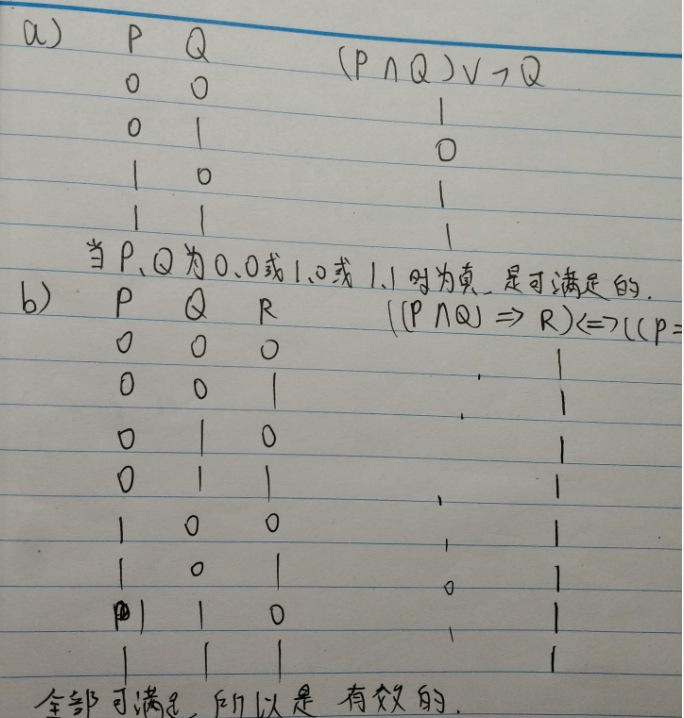 a) P Q (P∩Q)∨¬Q
0 0 1
0 1 0
1 0 1
1 1 1
当P、Q为0、0或1、0或1、1时为真,是可满足的.
b) P Q R ((P∩Q)=>R)<=>((P=
0 0 0 1
0 0 1 1
0 1 0 1
0 1 1 1
1 0 0 1
1 0 1 0 1
1 1 0 1
1 1 1 1
全部可满足,所以是有效的.